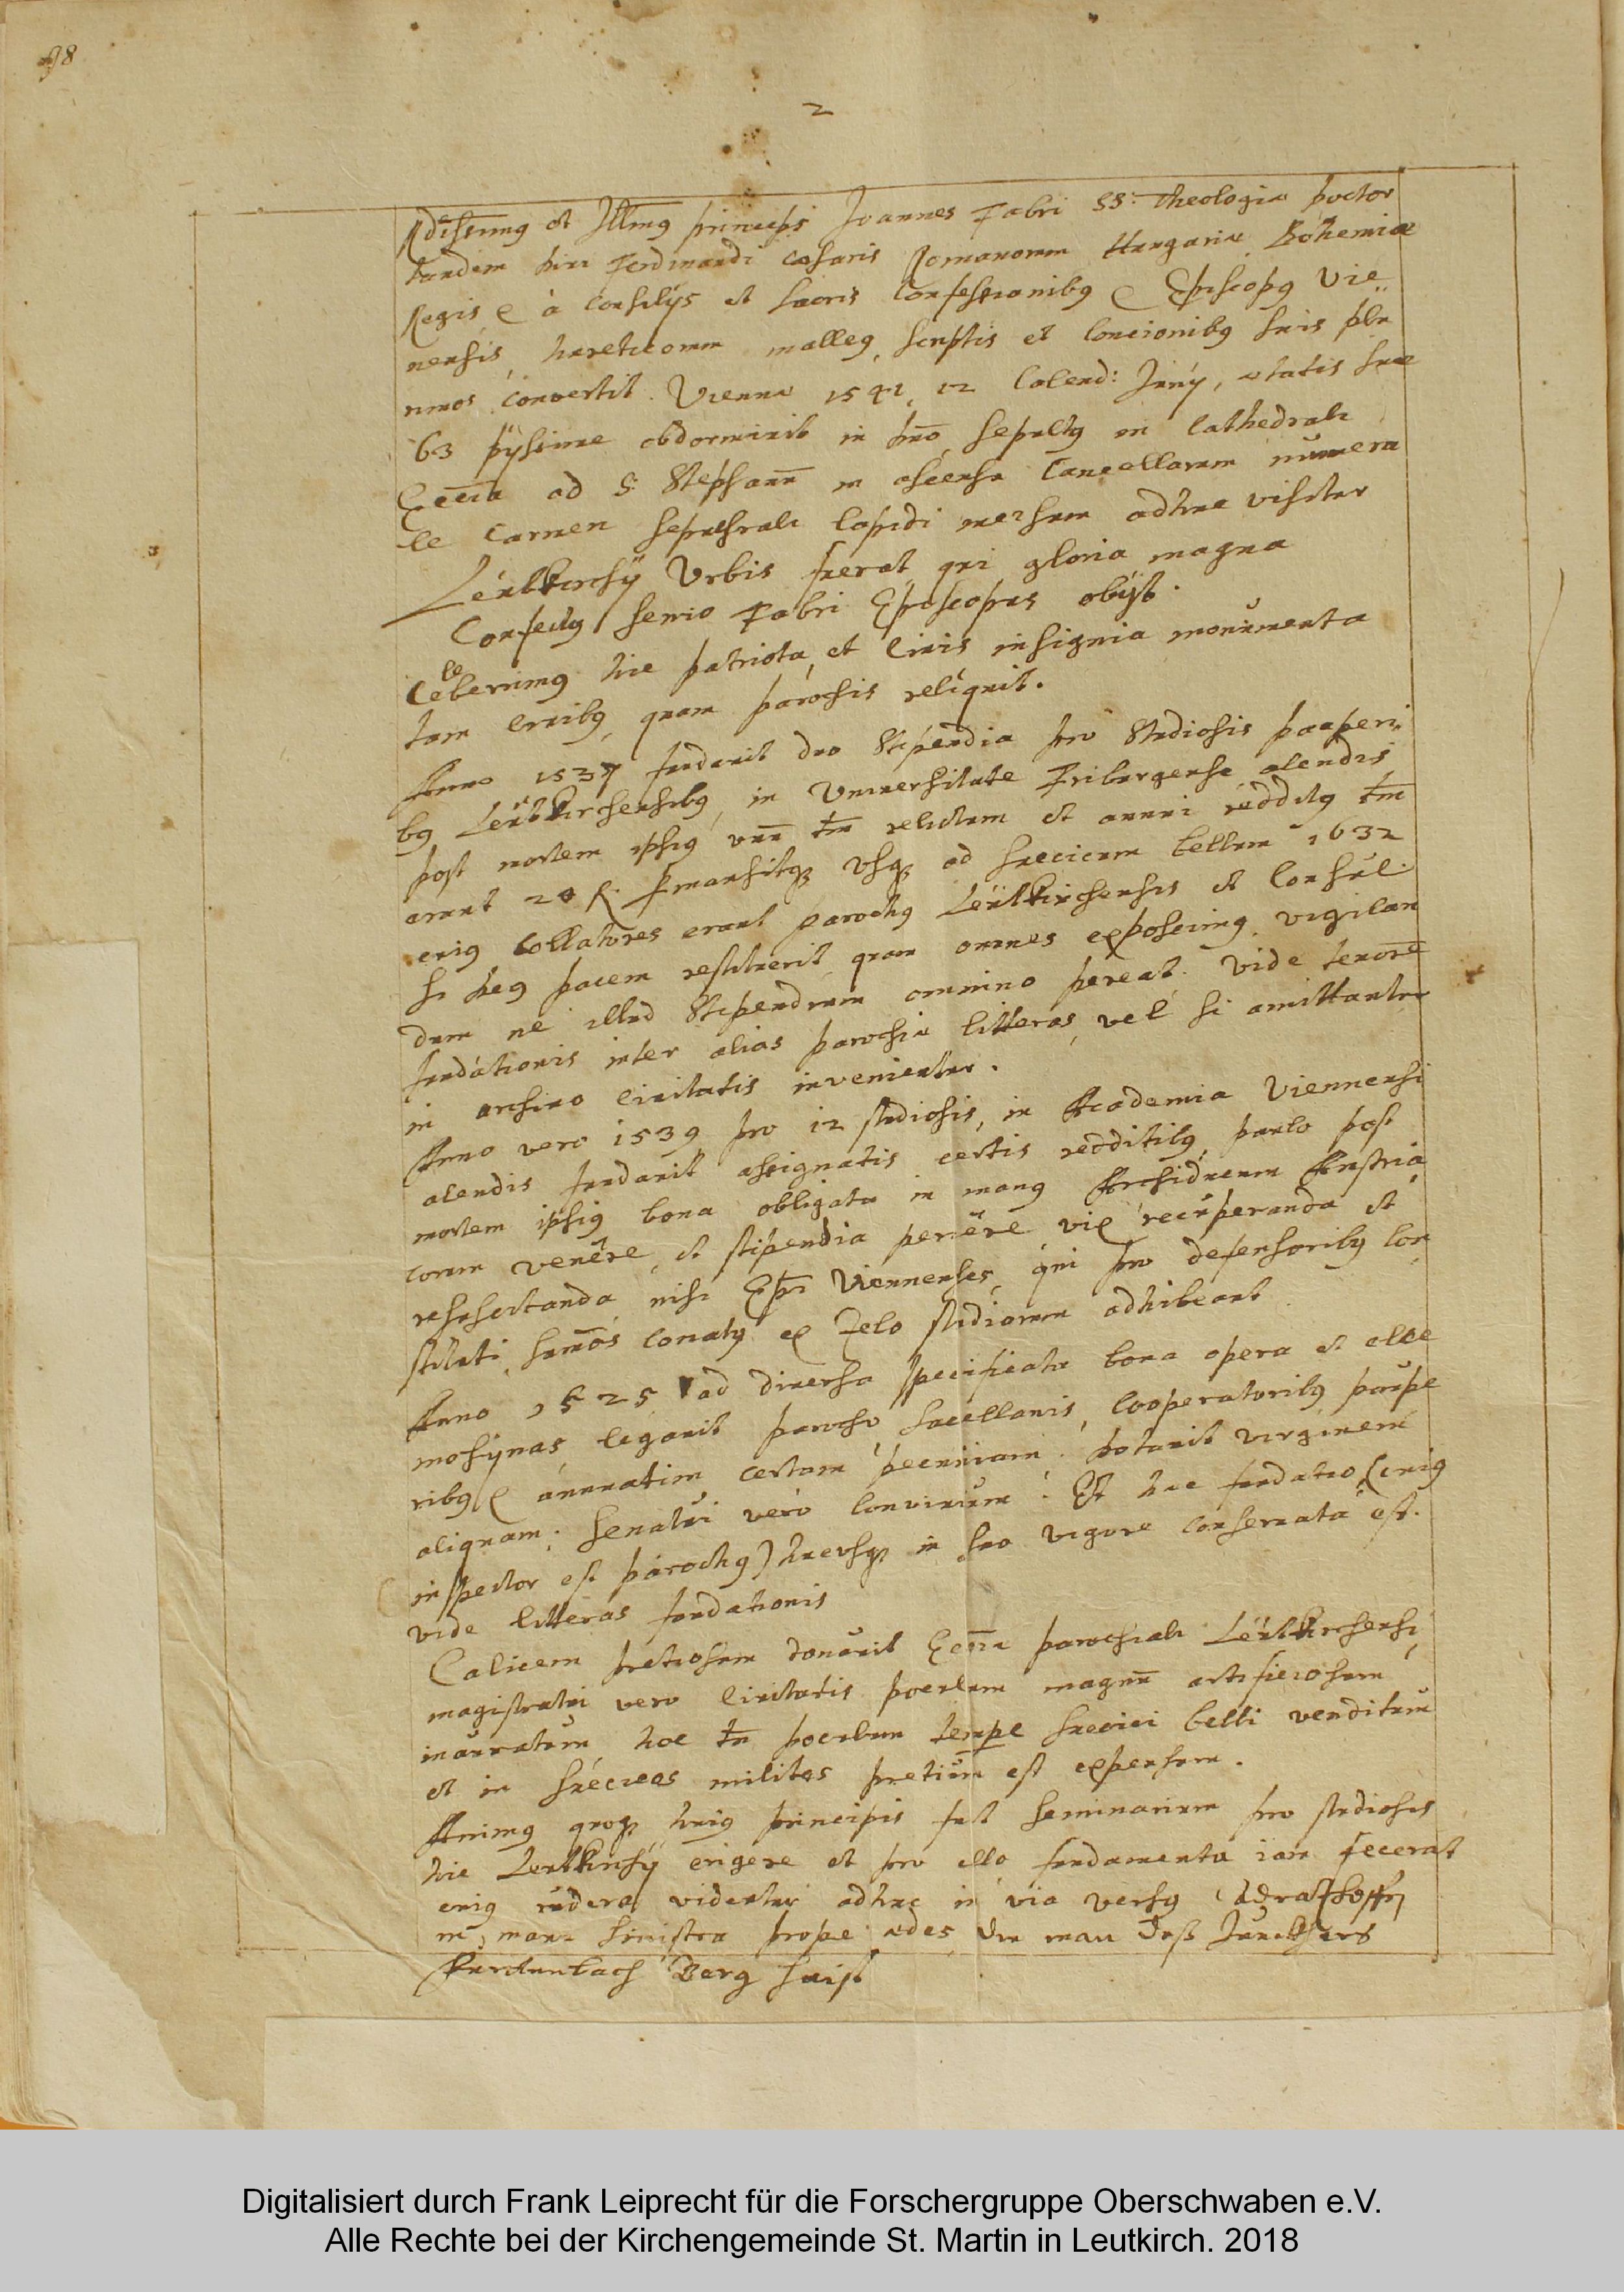 98
2
Rdissimus et Illmus princeps Joannes Fabri SS: Theologiæ Doctor
tandem divi Ferdinandi cæsaris Romanorum Hungariæ Bohemiæ
Regis & à consilijs et sacris Confessionibus & Episcopus Vie„
nensis, hæreticorum malleus, scriptis et concionibus suis plu
rimos convertit. Viennæ 1541, 12 Calend: Junij, ætatis suæ
63 pijssime obdormivit in Dno, sepultus in Cathedrali
Eccīa ad S: Stephanū in ascensu Cancellarum
le Carmen sepulchrali lapidi incisum adhuc visitur
Leutkirchij Vrbis fuerat qui gloria magna
Confectus senio Fabri Episcopus obijt.
Celeberrimus hic patriota, et civis insignia monumenta
tam civibus, quam parochis reliquit.
Anno 1537 fundavit duo Stipendia pro Studiosis pauperi„
bus Leutkirchensibus, in Vniversitate Friburgense alendis
post mortem ipsius vnū tm relictum et annui redditus tm
erant 20 f. permansitque vsque ad suecicum bellum 1632
cuius Collatores erant parochus Leutkirchensis et Consul
si Deus pacem restituerit, quam omnes exposcimus, vigilan
dum ne illud Stipendium omnino pereat. Vide tenorē
fundationis inter alias parochiæ litteras, vel si amittantur
in archivo civitatis invenientur.
Anno vero 1539 pro 12 studiosis, in Academia Viennensi
alendis fundavit assignatis certis redditibus, paulo post
mortem ipsius bona obligata in manus Archiducum Austria
corum venêre, et stipendia periêre vix recuperanda et
resuscitanda, nisi Epi Viennenses, qui pro defensoribus con
stituti, sumōs conatus ex Zelo studiorum adhibeant
Anno 1525 ad diversa specificata bona opera et elee
mosynas, legavit parocho sacellanis, Cooperatoribus paupe
ribus & annuatim certam pecuniam. Dotavit virginem
aliquam; senatui verò convivium. Et hæc fundatio (cuius
inspector est parochus) hucusque in suo vigore conservata est.
vide litteras fundationis
Calicem pretiosum donavit Eccīæ parochiali Leutkirchensi
magistratui vero civitatis poculum magnū artificiosum
inauratum, hoc tn poculum tempe suecici belli venditum
et in suecicos milites pretium est expensum.
Animus quoque huius principis fuit seminarium pro studiosis
hic Leutkirchij erigere et pro illo fundamenta iam fecerat
cuius rudera videntur adhuc in via versus
in manu sinistra prope ædes, die man deß Junckhers
Berg haist
Digitalisiert durch Frank Leiprecht für die Forschergruppe Oberschwaben e.V.
Alle Rechte bei der Kirchengemeinde St. Martin in Leutkirch. 2018